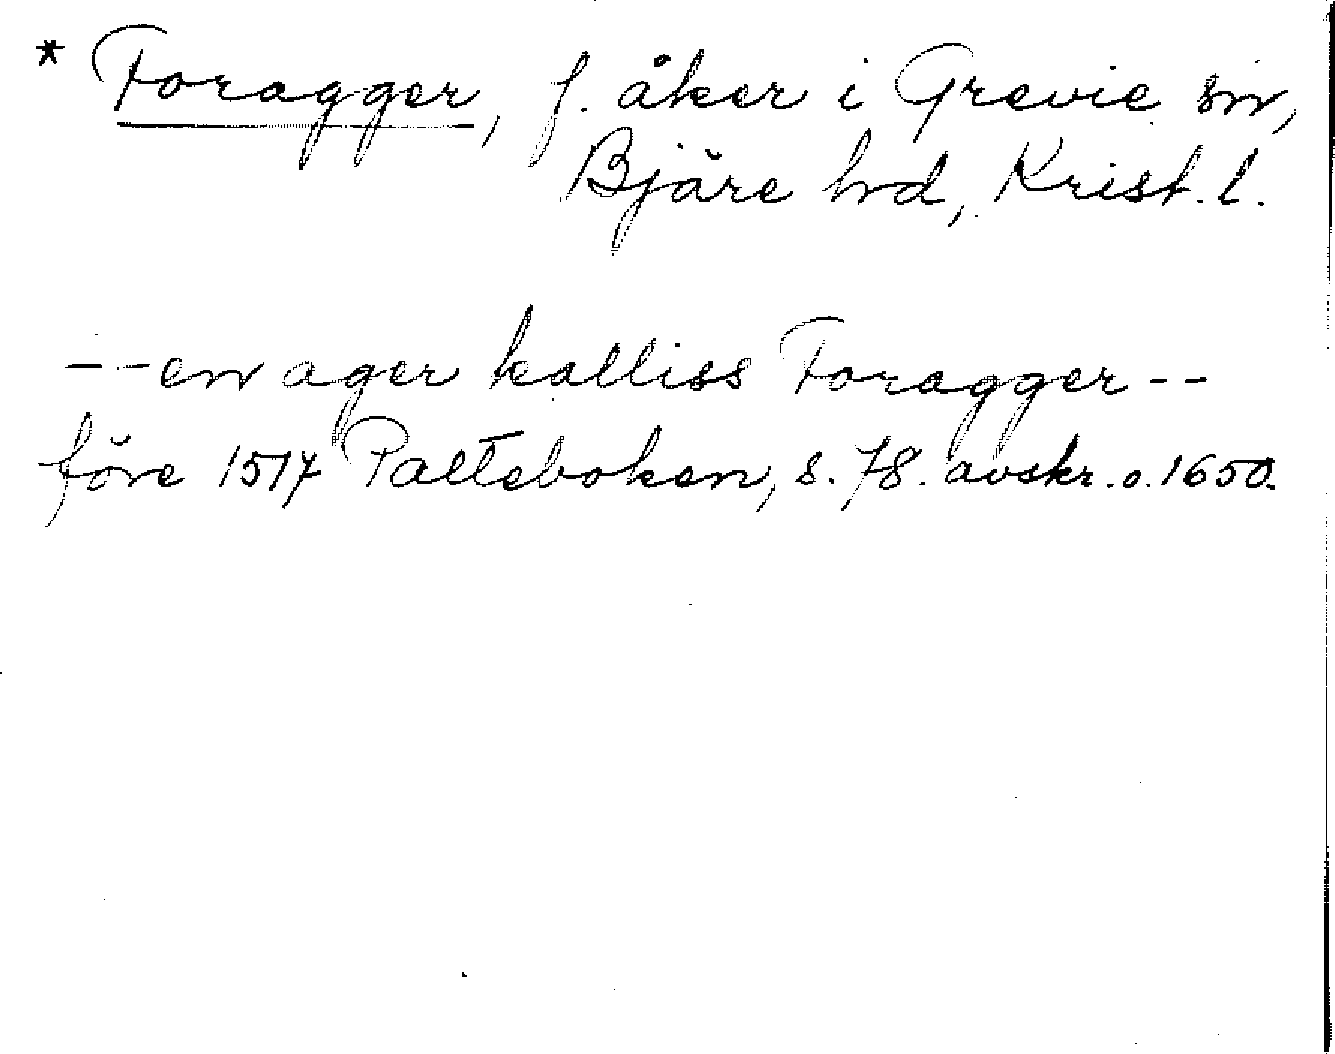 * Foragger, f. åker i Grevie sn,
Bjäre hd, Krist. l.
--en ager kalliss Foragger--
före 1517 Palteboken, s. 78. avskr. o. 1650.